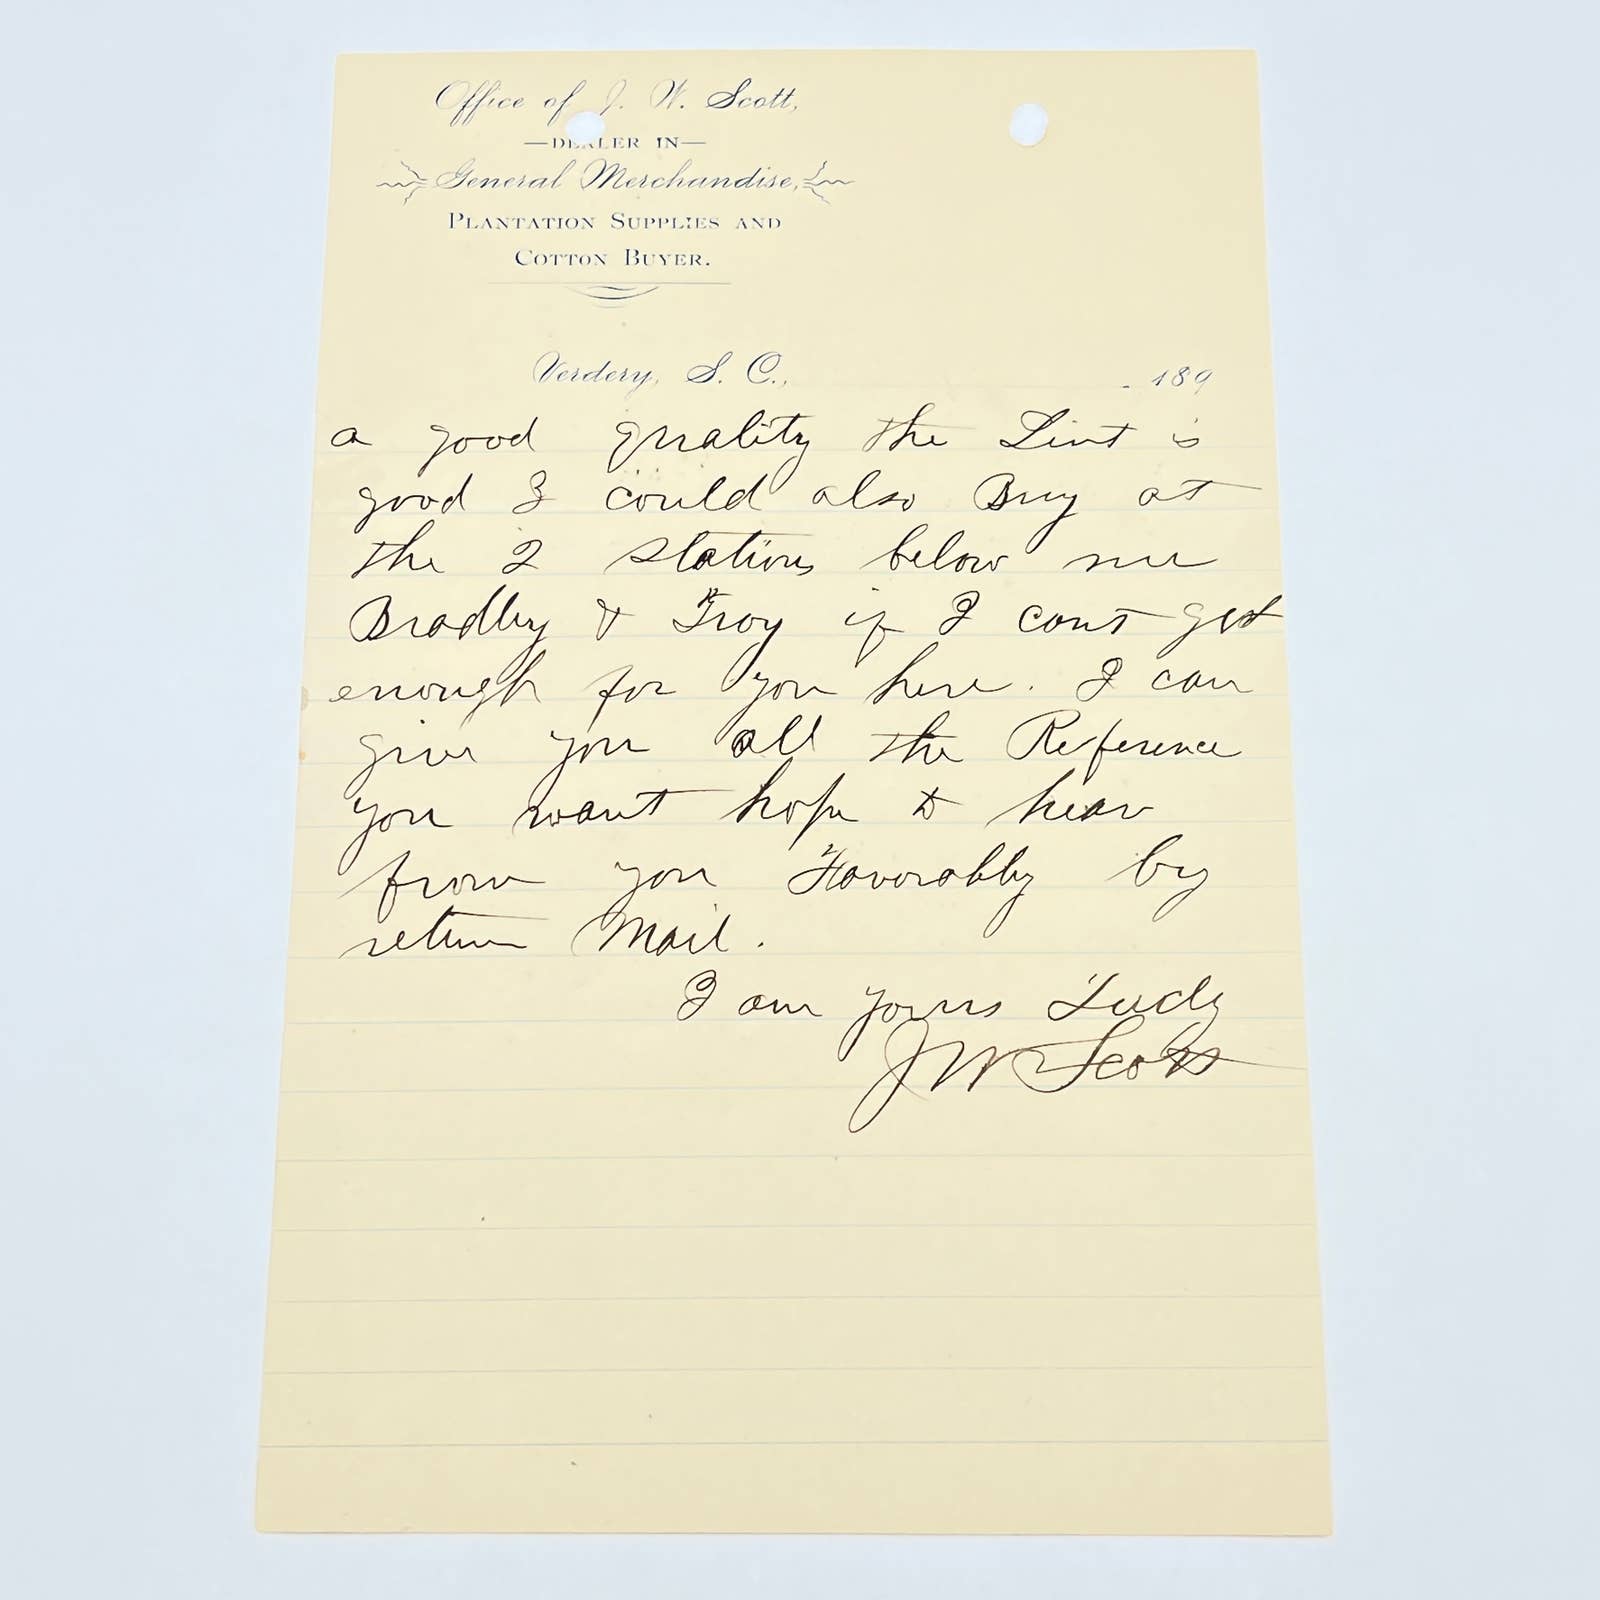 Office of J. W. Scott,
—DEALER IN—
General Merchandise,
PLANTATION SUPPLIES AND
COTTON BUYER.
Verdery, S. C., 189
a good quality the Lint is
good I could also Buy at
the 2 stations below me
Bradley & Troy if I cant get
enough for you here. I can
give you all the Reference
you want hope to hear
from you Favorably by
return Mail.
I am yours Truly
J W Scott